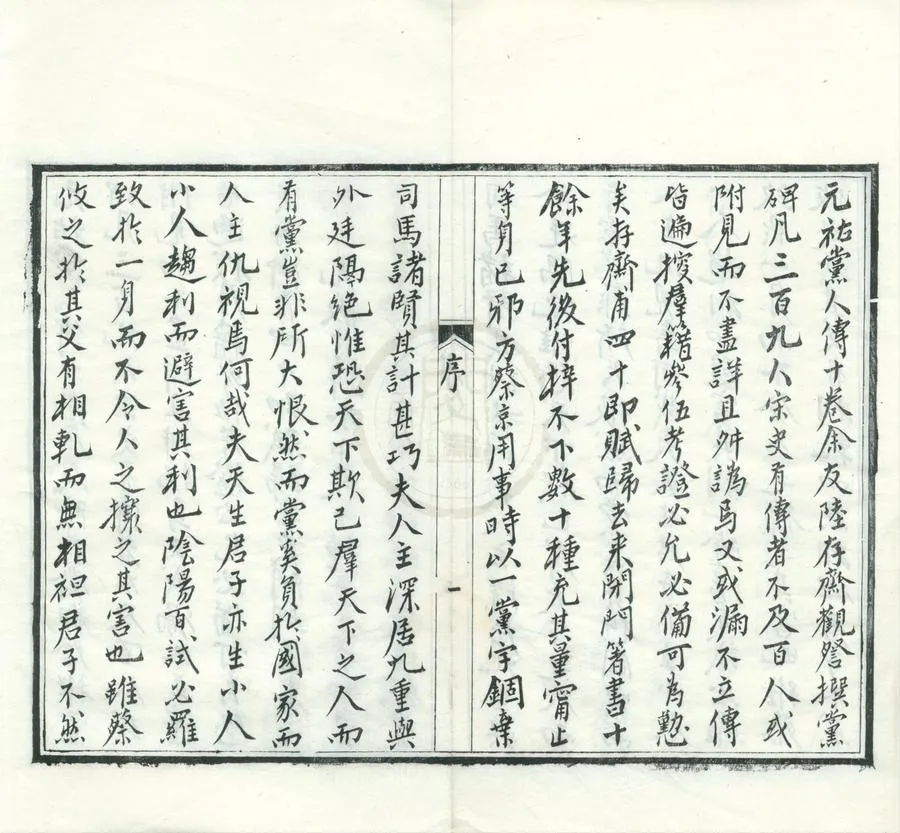 元祐黨人傳十卷余友陸存齋觀詧撰黨
碑凡三百九人宋史有傳者不及百人或
附見而不盡詳且舛譌焉又或漏不立傳
皆遍搜羣籍參伍考證必允必備可為懃
矣存齋甫四十即賦歸去来閉門箸書十
餘年先後付梓不下數十種充其量甯止
等身已邪方蔡京用事時以一黨字錮棄
序
一
司馬諸賢其計甚巧夫人主深居九重與
外廷隔絶惟恐天下欺己羣天下之人而
有黨豈非所大恨然而黨奚負扵國家而
人主仇視焉何哉夫天生君子亦生小人
小人趨利而避害其利也陰陽百試必羅
致扵一身而不令人之攘之其害也雖蔡
攸之扵其父有相軋而無相袒君子不然